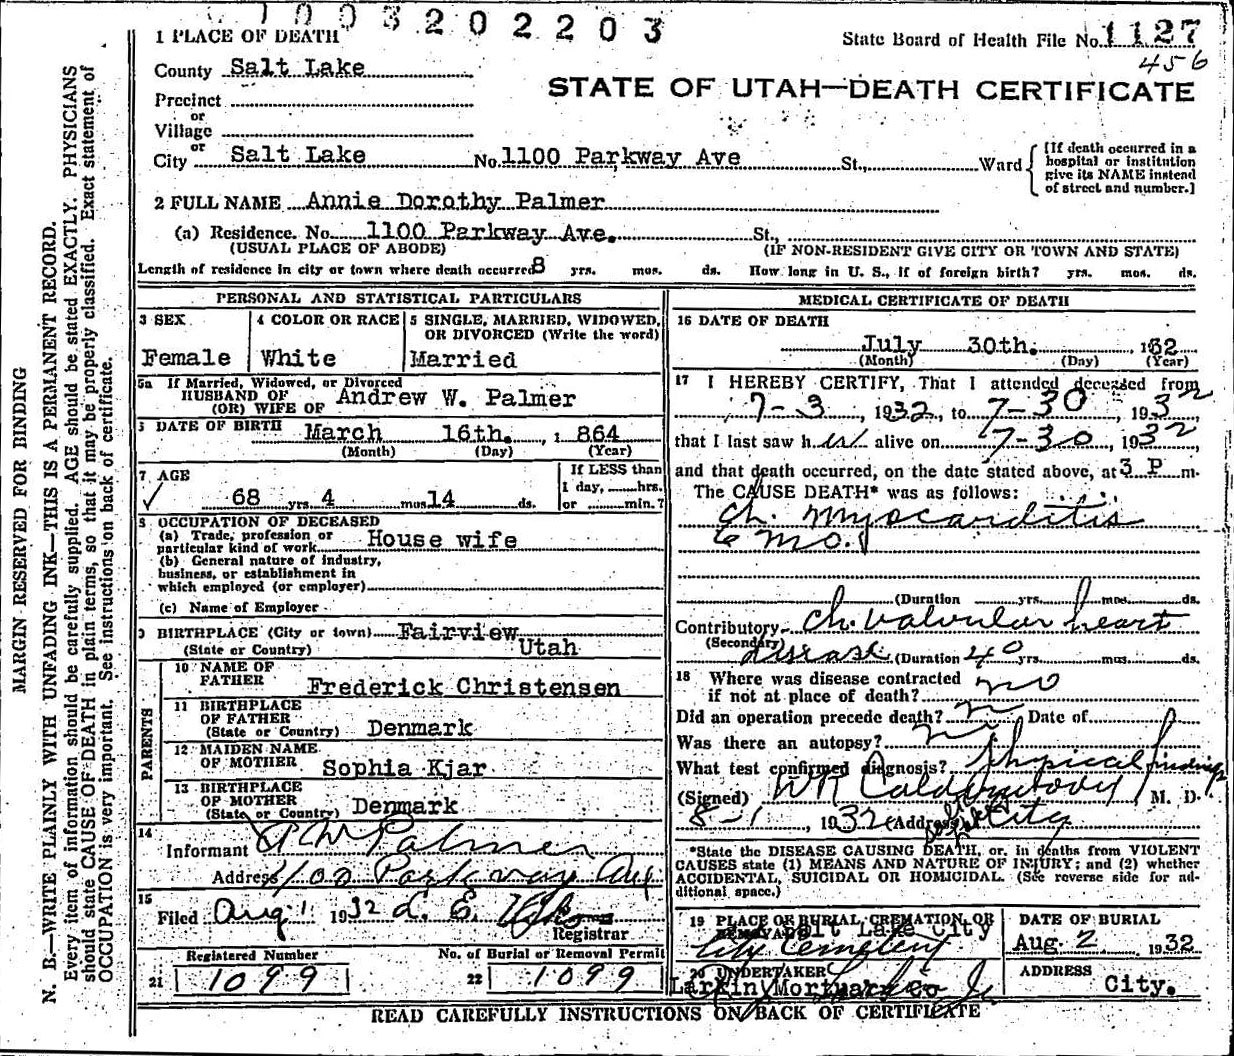 1003202203
1 PLACE OF DEATH
State Board of Health File No. 1127
456
County Salt Lake
STATE OF UTAH—DEATH CERTIFICATE
Precinct
or
Village
or
City Salt Lake No. 1100 Parkway Ave St., Ward
[If death occurred in a
hospital or institution
give its NAME instead
of street and number.]
2 FULL NAME Annie Dorothy Palmer
(a) Residence. No. 1100 Parkway Ave. St.,
(USUAL PLACE OF ABODE) (IF NON-RESIDENT GIVE CITY OR TOWN AND STATE)
Length of residence in city or town where death occurred 8 yrs. mos. ds. How long in U. S., if of foreign birth? yrs. mos. ds.
PERSONAL AND STATISTICAL PARTICULARS
3 SEX
Female
4 COLOR OR RACE
White
5 SINGLE, MARRIED, WIDOWED,
OR DIVORCED (Write the word)
Married
5a If Married, Widowed, or Divorced
HUSBAND OF
(OR) WIFE OF Andrew W. Palmer
DATE OF BIRTH March 16th. 1864
(Month) (Day) (Year)
7 AGE
✓ 68 yrs 4 mos 14 ds.
If LESS than
1 day, hrs.
or min.?
8 OCCUPATION OF DECEASED
(a) Trade, profession or
particular kind of work House wife
(b) General nature of industry,
business, or establishment in
which employed (or employer)
(c) Name of Employer
9 BIRTHPLACE (City or town) Fairview
(State or Country) Utah
PARENTS
10 NAME OF
FATHER Frederick Christensen
11 BIRTHPLACE
OF FATHER
(State or Country) Denmark
12 MAIDEN NAME
OF MOTHER Sophia Kjar
13 BIRTHPLACE
OF MOTHER
(State or Country) Denmark
14
Informant A W Palmer
Address 1100 Parkway Ave
15
Filed Aug 1 1932 L. E.
Registrar
Registered Number
21 1099
No. of Burial or Removal Permit
22 1099
MEDICAL CERTIFICATE OF DEATH
16 DATE OF DEATH
July 30th. 1932
(Month) (Day) (Year)
17 I HEREBY CERTIFY, That I attended deceased from
7-3, 1932, to 7-30, 1932
that I last saw her alive on 7-30, 1932
and that death occurred, on the date stated above, at 3 P m.
The CAUSE DEATH* was as follows:
Ch. Myocarditis
6 mo.
(Duration yrs. mos. ds.
Contributory Ch. Valvular heart
(Secondary) disease (Duration 40 yrs. mos. ds.
18 Where was disease contracted
if not at place of death? no
Did an operation precede death? n Date of
Was there an autopsy? n
What test confirmed diagnosis? Physical findings
(Signed) W R Calderwood M. D.
8-1, 1932 (Address) City
*State the DISEASE CAUSING DEATH, or, in deaths from VIOLENT
CAUSES state (1) MEANS AND NATURE OF INJURY; and (2) whether
ACCIDENTAL, SUICIDAL OR HOMICIDAL. (See reverse side for ad-
ditional space.)
19 PLACE OF BURIAL, CREMATION, OR
REMOVAL Salt Lake City
City Cemetery
DATE OF BURIAL
Aug. 2 1932
20 UNDERTAKER
Larkin Mortuary Co
ADDRESS
City.
READ CAREFULLY INSTRUCTIONS ON BACK OF CERTIFICATE
MARGIN RESERVED FOR BINDING
N. B.—WRITE PLAINLY WITH UNFADING INK—THIS IS A PERMANENT RECORD.
Every item of information should be carefully supplied. AGE should be stated EXACTLY. PHYSICIANS
should state CAUSE OF DEATH in plain terms, so that it may be properly classified. Exact statement of
OCCUPATION is very important. See instructions on back of certificate.